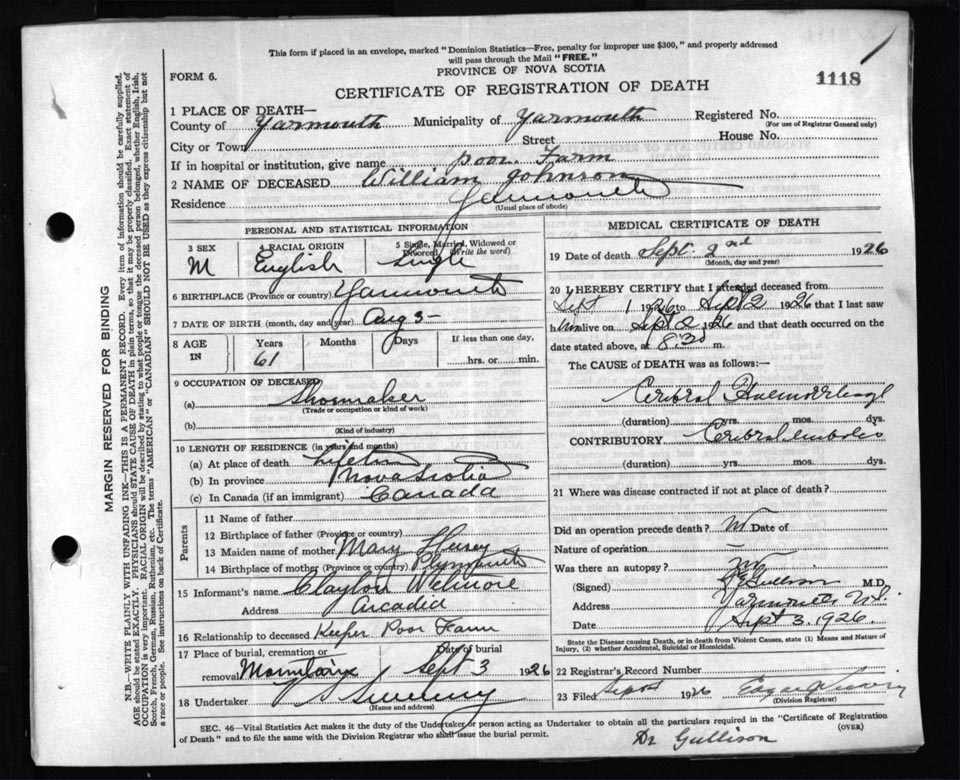 This form if placed in an envelope, marked "Dominion Statistics—Free, penalty for improper use $300," and properly addressed
will pass through the Mail "FREE."
PROVINCE OF NOVA SCOTIA
FORM 6.
1118
CERTIFICATE OF REGISTRATION OF DEATH
1 PLACE OF DEATH—
County of Yarmouth Municipality of Yarmouth Registered No.
(For use of Registrar General only)
City or Town Street House No.
If in hospital or institution, give name poor Farm
2 NAME OF DECEASED William Johnson
Residence Yarmouth
(Usual place of abode)
PERSONAL AND STATISTICAL INFORMATION
3 SEX 4 RACIAL ORIGIN 5 Single, Married, Widowed or Divorced (Write the word)
M English Single
6 BIRTHPLACE (Province or country) Yarmouth
7 DATE OF BIRTH (month, day and year) Aug 3 -
8 AGE IN Years Months Days If less than one day,
61 hrs. or min.
9 OCCUPATION OF DECEASED
(a) Shomaker
(Trade or occupation or kind of work)
(b)
(Kind of industry)
10 LENGTH OF RESIDENCE (in years and months)
(a) At place of death
(b) In province Nova Scotia
(c) In Canada (if an immigrant) Canada
Parents
11 Name of father
12 Birthplace of father (Province or country)
13 Maiden name of mother Mary
14 Birthplace of mother (Province or country) Plymouth
15 Informant's name Clayton Welmore
Address Arcadia
16 Relationship to deceased Keeper Poor Farm
17 Place of burial, cremation or removal Date of burial
Sept 3 1926
18 Undertaker Sweeny
(Name and address)
MEDICAL CERTIFICATE OF DEATH
19 Date of death Sept. 2nd 1926
(Month, day and year)
20 I HEREBY CERTIFY that I attended deceased from
Sept 1 1926 to Sept 2 1926 that I last saw
him alive on Sept 2 1926 and that death occurred on
date stated above, at 8.30 m.
The CAUSE of DEATH was as follows:—
Cerebral Haemorrhage
(duration) yrs. mos. dys.
CONTRIBUTORY Cerebral embolis
(duration) yrs. mos. dys.
21 Where was disease contracted if not at place of death?
Did an operation precede death? Date of
Nature of operation —
Was there an autopsy?
(Signed) Gullison M.D.
Address Yarmouth N.S.
Date Sept 3, 1926.
State the Disease causing Death, or in death from Violent Causes, state (1) Means and Nature of
Injury, (2) whether Accidental, Suicidal or Homicidal.
22 Registrar's Record Number
23 Filed Sept 1926 Edgar
(Division Registrar)
SEC. 46—Vital Statistics Act makes it the duty of the Undertaker or person acting as Undertaker to obtain all the particulars required in the "Certificate of Registration
of Death" and to file the same with the Division Registrar who shall issue the burial permit. (OVER)
Dr Gullison
MARGIN RESERVED FOR BINDING
N.B.—WRITE PLAINLY WITH UNFADING INK—THIS IS A PERMANENT RECORD. Every item of information should be carefully supplied.
AGE should be stated EXACTLY. PHYSICIANS should STATE CAUSE OF DEATH in plain terms, so that it may be properly classified. Exact statement of
OCCUPATION is very important. RACIAL ORIGIN will be described by stating to what people or tongue the deceased person belonged, whether English, Irish,
Scotch, French, German, Russian, Ruthenian, etc. The terms "AMERICAN" or "CANADIAN" SHOULD NOT BE USED as they express citizenship but not
a race or people. See instructions on back of Certificate.